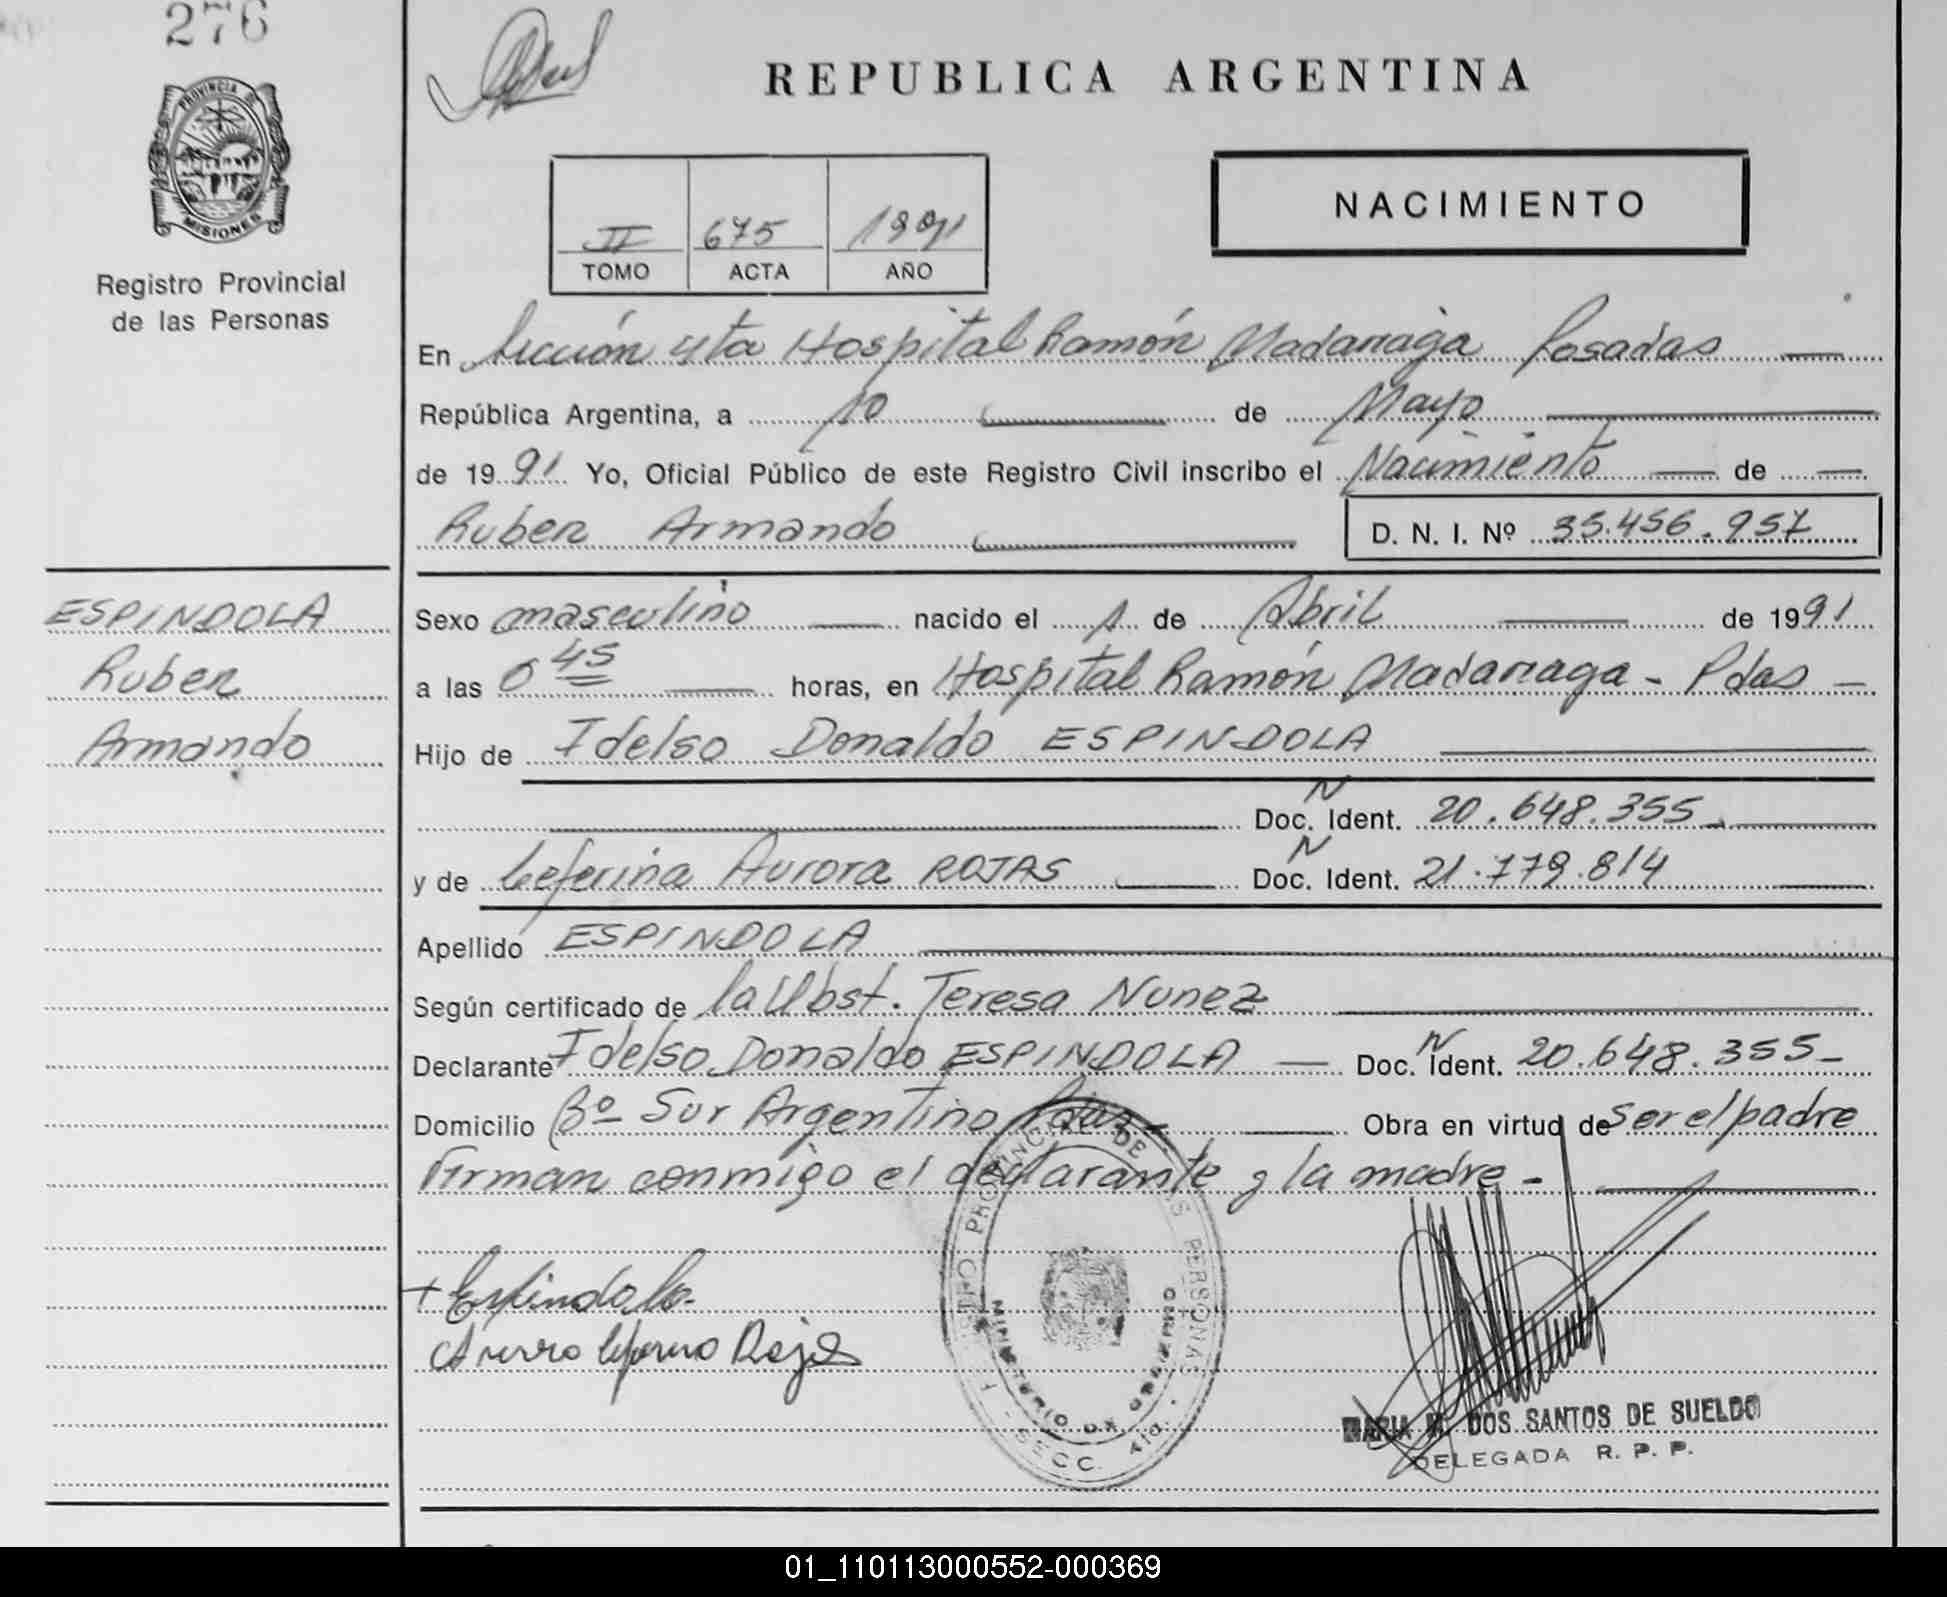 276
PROVINCIA DE
MISIONES
Registro Provincial
de las Personas
REPUBLICA ARGENTINA
NACIMIENTO
II 675 1991
TOMO ACTA AÑO
En Sección 4ta Hospital Ramón Madariaga Posadas
República Argentina, a 10 de Mayo
de 1991 Yo, Oficial Público de este Registro Civil inscribo el Nacimiento de
Ruben Armando D. N. I. Nº 35.456.957
ESPINDOLA
Ruben
Armando
Sexo masculino nacido el 1 de Abril de 1991
a las 0 45 horas, en Hospital Ramón Madariaga - Pdas -
Hijo de Idelso Donaldo ESPINDOLA
N
Doc. Ident. 20.648.355
N
y de Ceferina Aurora ROJAS Doc. Ident. 21.779.814
Apellido ESPINDOLA
Según certificado de la Obst. Teresa Nunez
N
Declarante Idelso Donaldo ESPINDOLA Doc. Ident. 20.648.355-
Domicilio Bº Sur Argentino Pdas- Obra en virtud de ser el padre
Firman conmigo el declarante y la madre-
+ Espindola
Aurora Ceferina Rojas
PROVINCIAL DE LAS PERSONAS
MINISTERIO DE GOBIERNO
- SECC. 4ta. -
MARIA M. DOS SANTOS DE SUELDO
DELEGADA R. P. P.
01_110113000552-000369